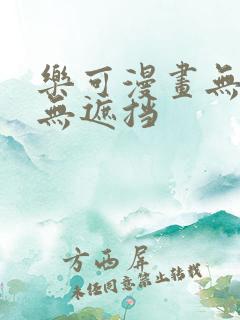 樂可漫畫無
無遮挡
方西屏
未经同意禁止转载